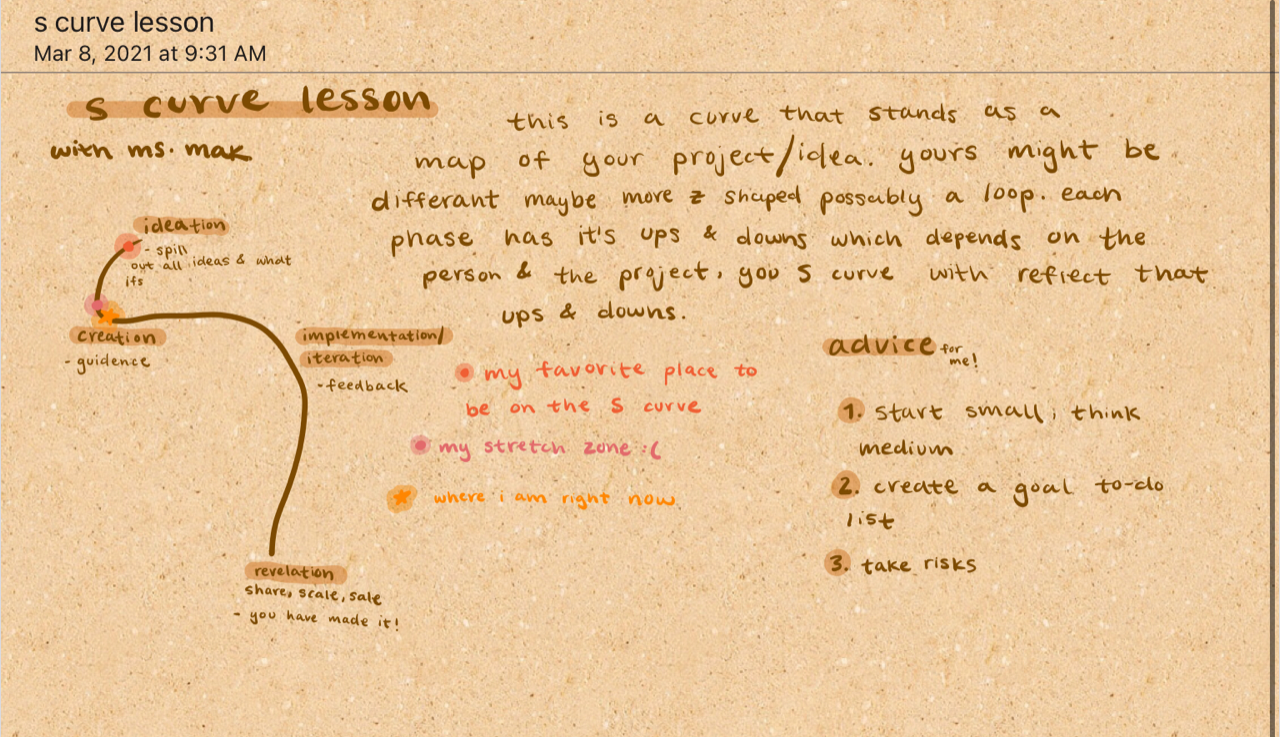 s curve lesson
Mar 8, 2021 at 9:31 AM
s curve lesson
with ms. mak
this is a curve that stands as a
map of your project/idea. yours might be
differant maybe more z shaped possably a loop. each
phase has it's ups & downs which depends on the
person & the project, you S curve with reflect that
ups & downs.
ideation
- spill
out all ideas & what
ifs
creation
- guidence
implementation/
iteration
- feedback
revelation
share, scale, sale
- you have made it!
my favorite place to
be on the S curve
my stretch zone :(
where i am right now
advice for
me!
1. start small, think
medium
2. create a goal to-do
list
3. take risks